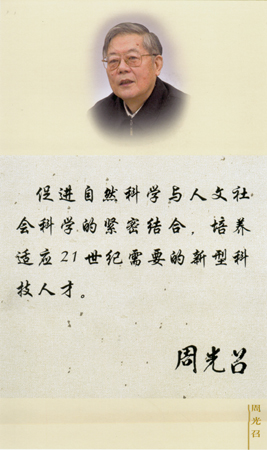 促进自然科学与人文社
会科学的紧密结合，培养
适应21世纪需要的新型科
技人才。
周光召
周光召